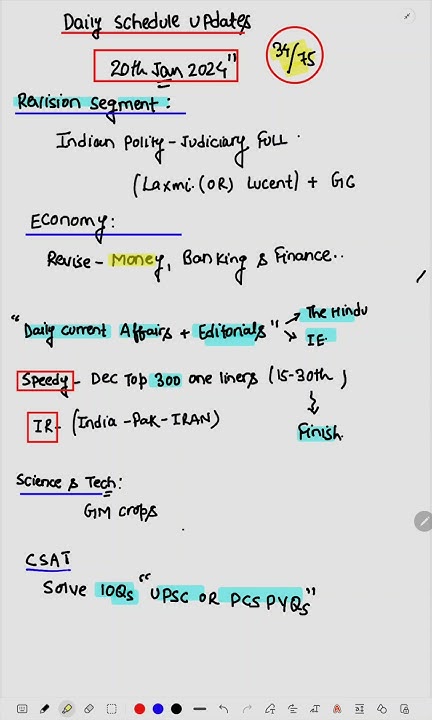 Daily schedule updates
20th Jan 2024"
34/75
Revision segment:
Indian Polity - Judiciary FULL.
(Laxmi. (OR) Lucent) + GC
Economy:
Revise - Money, Banking & Finance..
"Daily current Affairs + Editorials" → The Hindu
→ IE.
Speedy - Dec Top 300 one liners (15-30th)
Finish.
IR - (India - Pak - IRAN)
Science & Tech:
GM crops
CSAT
Solve 10Qs "UPSC OR PCS PYQs"